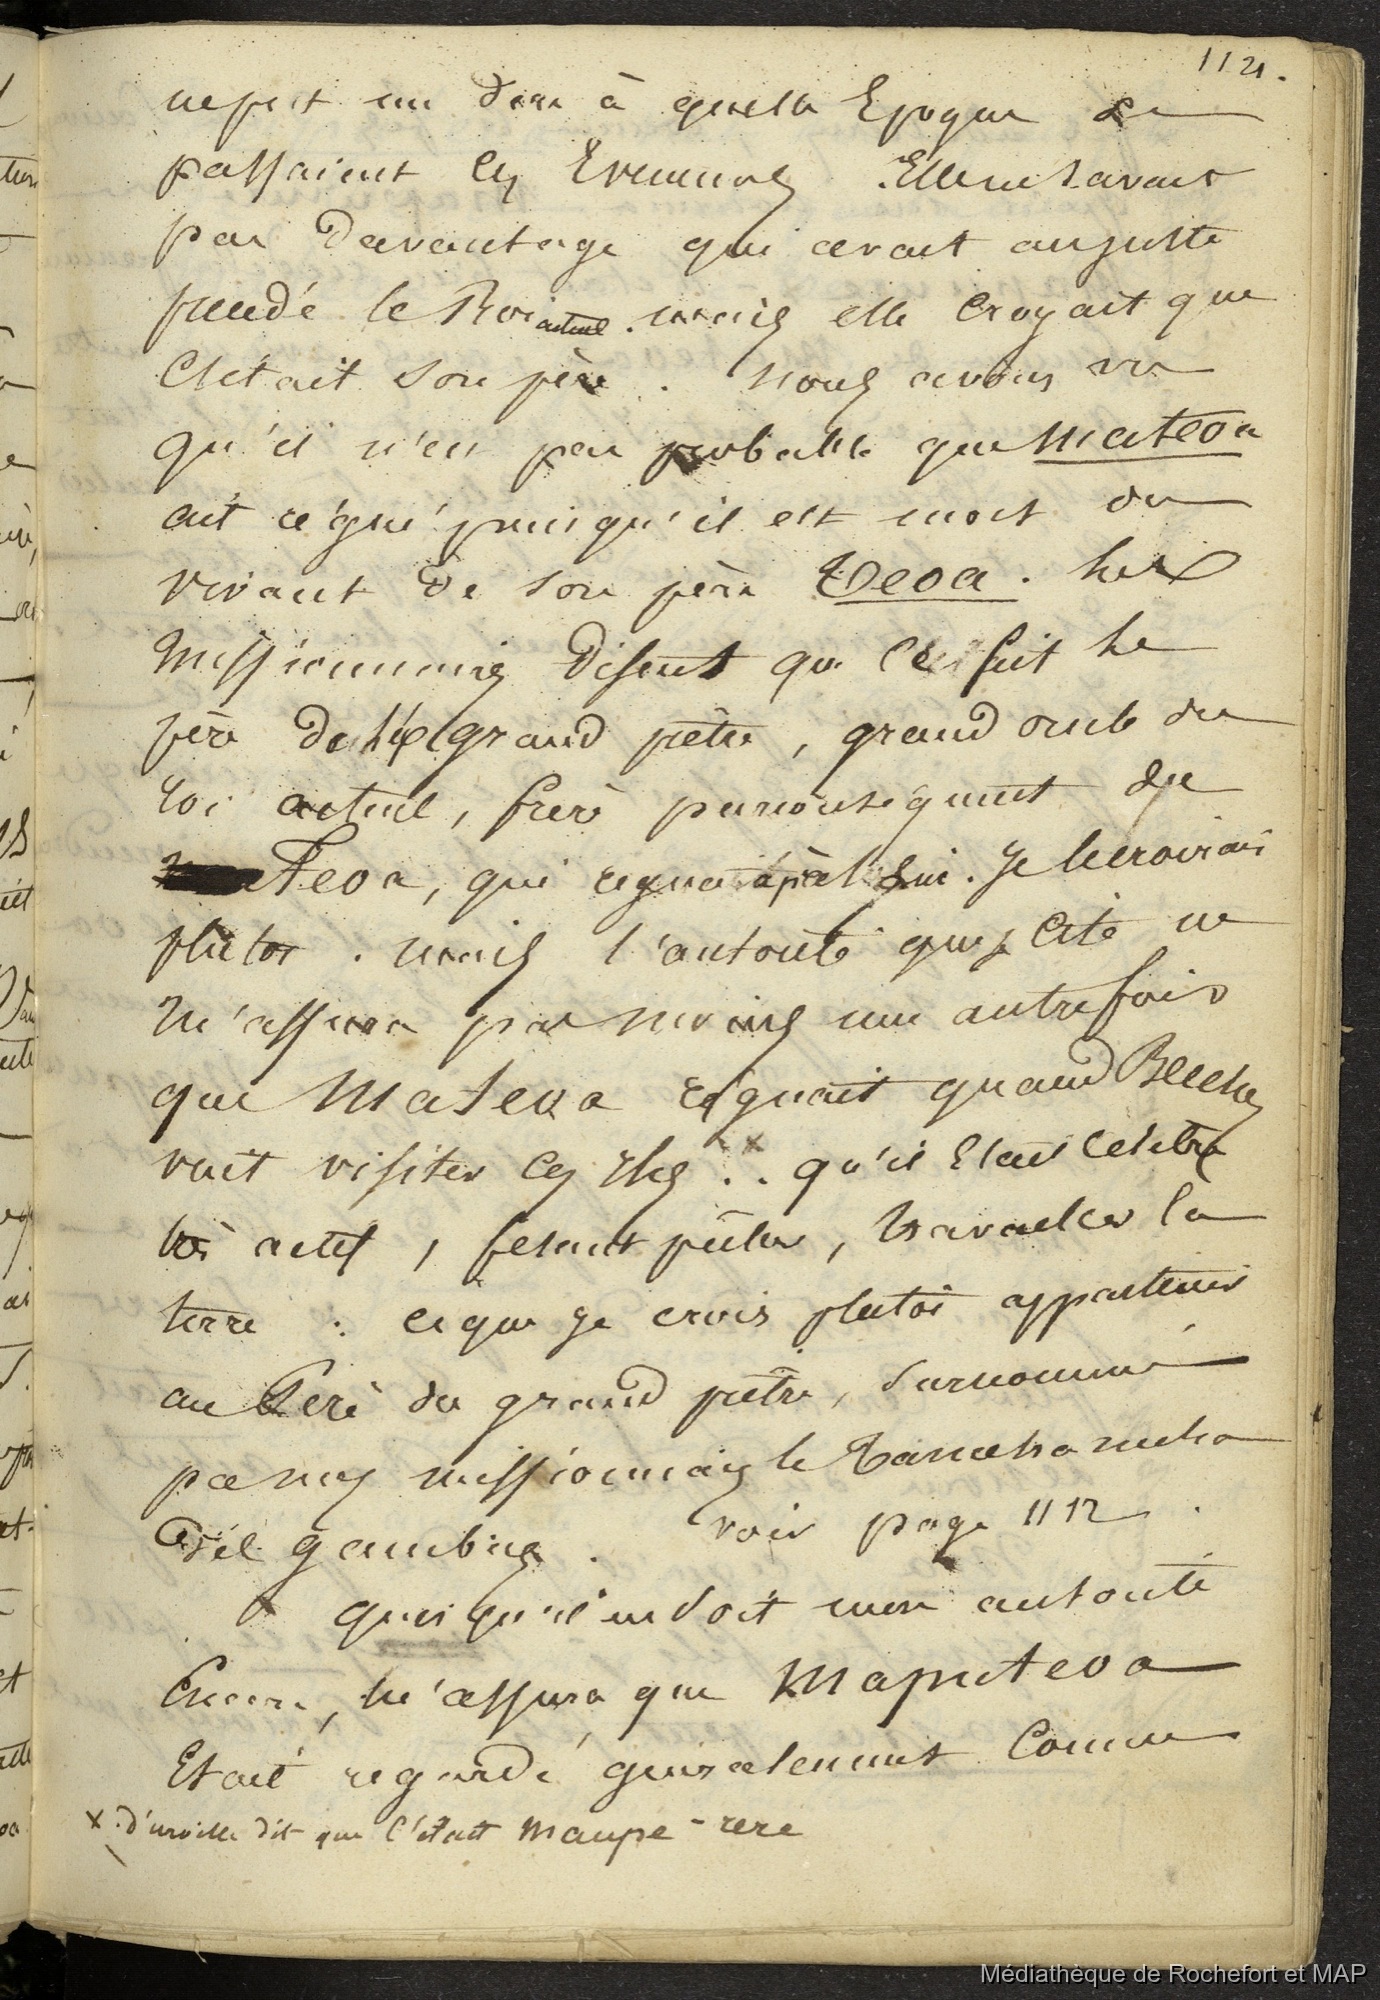 1121.
ne put me dire à quelle Epoque se
passaient ces Evenemens. Elle ne savait
pas davantage qui avait
le Roi actuel. mais elle croyait que
C'était son père. nous avons vu
qu'il n'est pas probable que Mateoa
ait régné puisqu'il est mort du
vivant de son père Teoa. Les
Missionnaires disent que ce fut le
père du grand prêtre, grand oncle du
roi actuel, frère par conséquent de
Teoa, qui regna après lui. Je le croirais
plutot. mais l'autorité que je cite ne
m'assura pas moins une autre fois
que Mateoa régnait quand Beechey
vint visiter ces Iles x .. qu'il Etait
très actif, fesant pêcher, travailler la
terre : ce que je crois plutôt appartenir
au Père du grand prêtre, surnommé
par nos missionnaires le Tamehameha
des iles gambier. voir page 1112.
quoiqu'il en soit mon autorité
Encore, m'assura que Maputeoa
Etait regardé généralement Comme
x d'urville dit que c'était Maupe-rere
Médiathèque de Rochefort et MAP